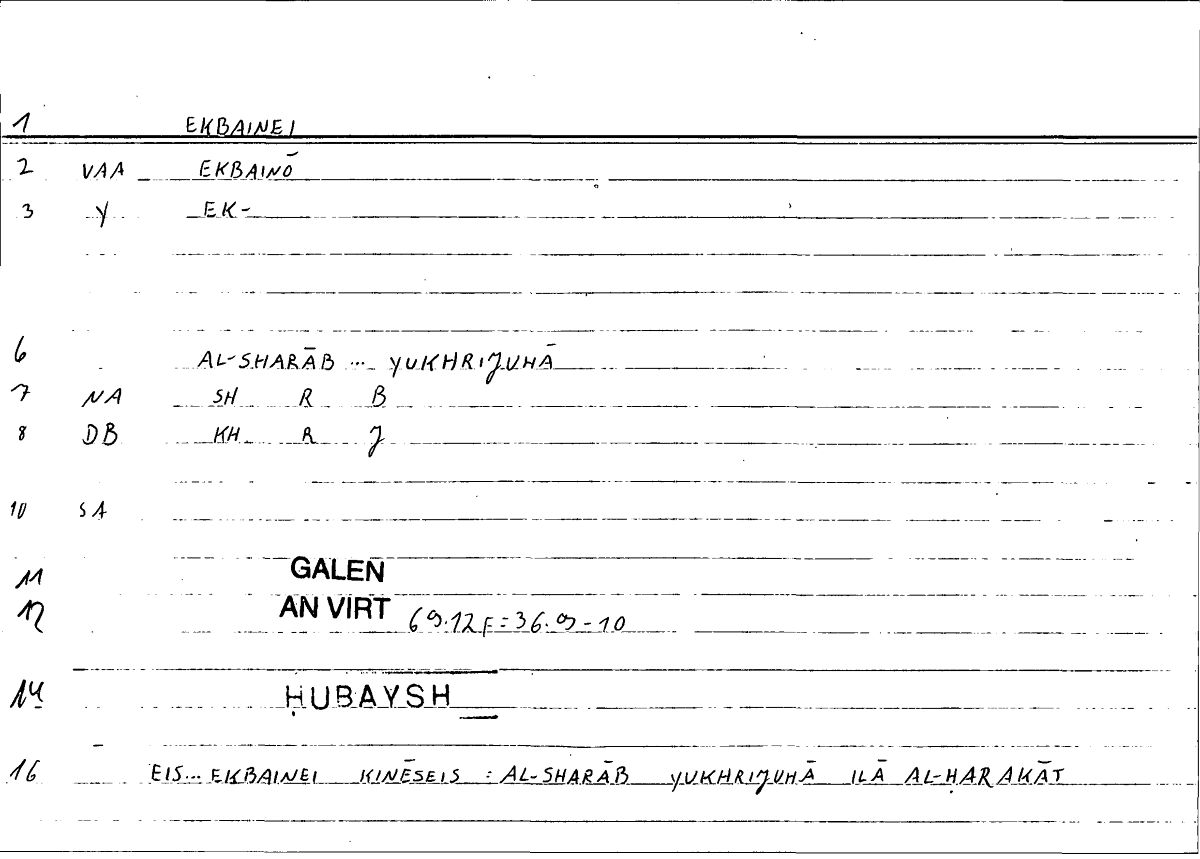 1 EKBAINEI
2 VAA EKBAINŌ
3 Y EK-
6 AL-SHARĀB ... YUKHRIJUHĀ
7 NA SH R B
8 DB KH R J
10 SA
11 GALEN
12 AN VIRT 69.12F=36.9-10
14 ḤUBAYSH
16 EIS... EKBAINEI KINĒSEIS : AL-SHARĀB YUKHRIJUHĀ ILĀ AL-ḤARAKĀT